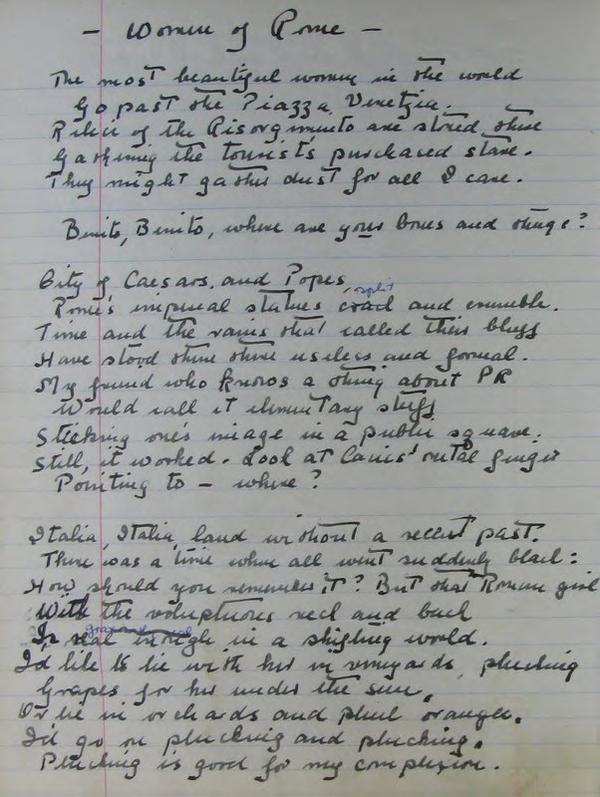 - Women of Rome -
The most beautiful women in the world
Go past the Piazza Venetzia.
Relics of the Risorgimento are stored there
Gathering the tourist's purchased stare.
They might gather dust for all I care.
Benito, Benito, where are your bones and things?
City of Caesars, and Popes,
split
Rome's imperial statues crack and crumble.
Time and the rains that called their bluff
Have stood there three useless and formal.
My friend who knows a thing about PR
Would call it elementary stuff
Sticking one's image in a public square;
Still, it worked. Look at Caius' metal finger
Pointing to - where?
Italia, Italia, land without a recent past.
There was a time when all went suddenly black:
How should you remember it? But that Roman girl
With the voluptuous neck and back
Is real enough in a shifting world.
I'd like to lie with her in vineyards, plucking
Grapes for her under the sun,
Or lie in orchards and pluck oranges.
I'd go on plucking and plucking.
Plucking is good for my complexion.